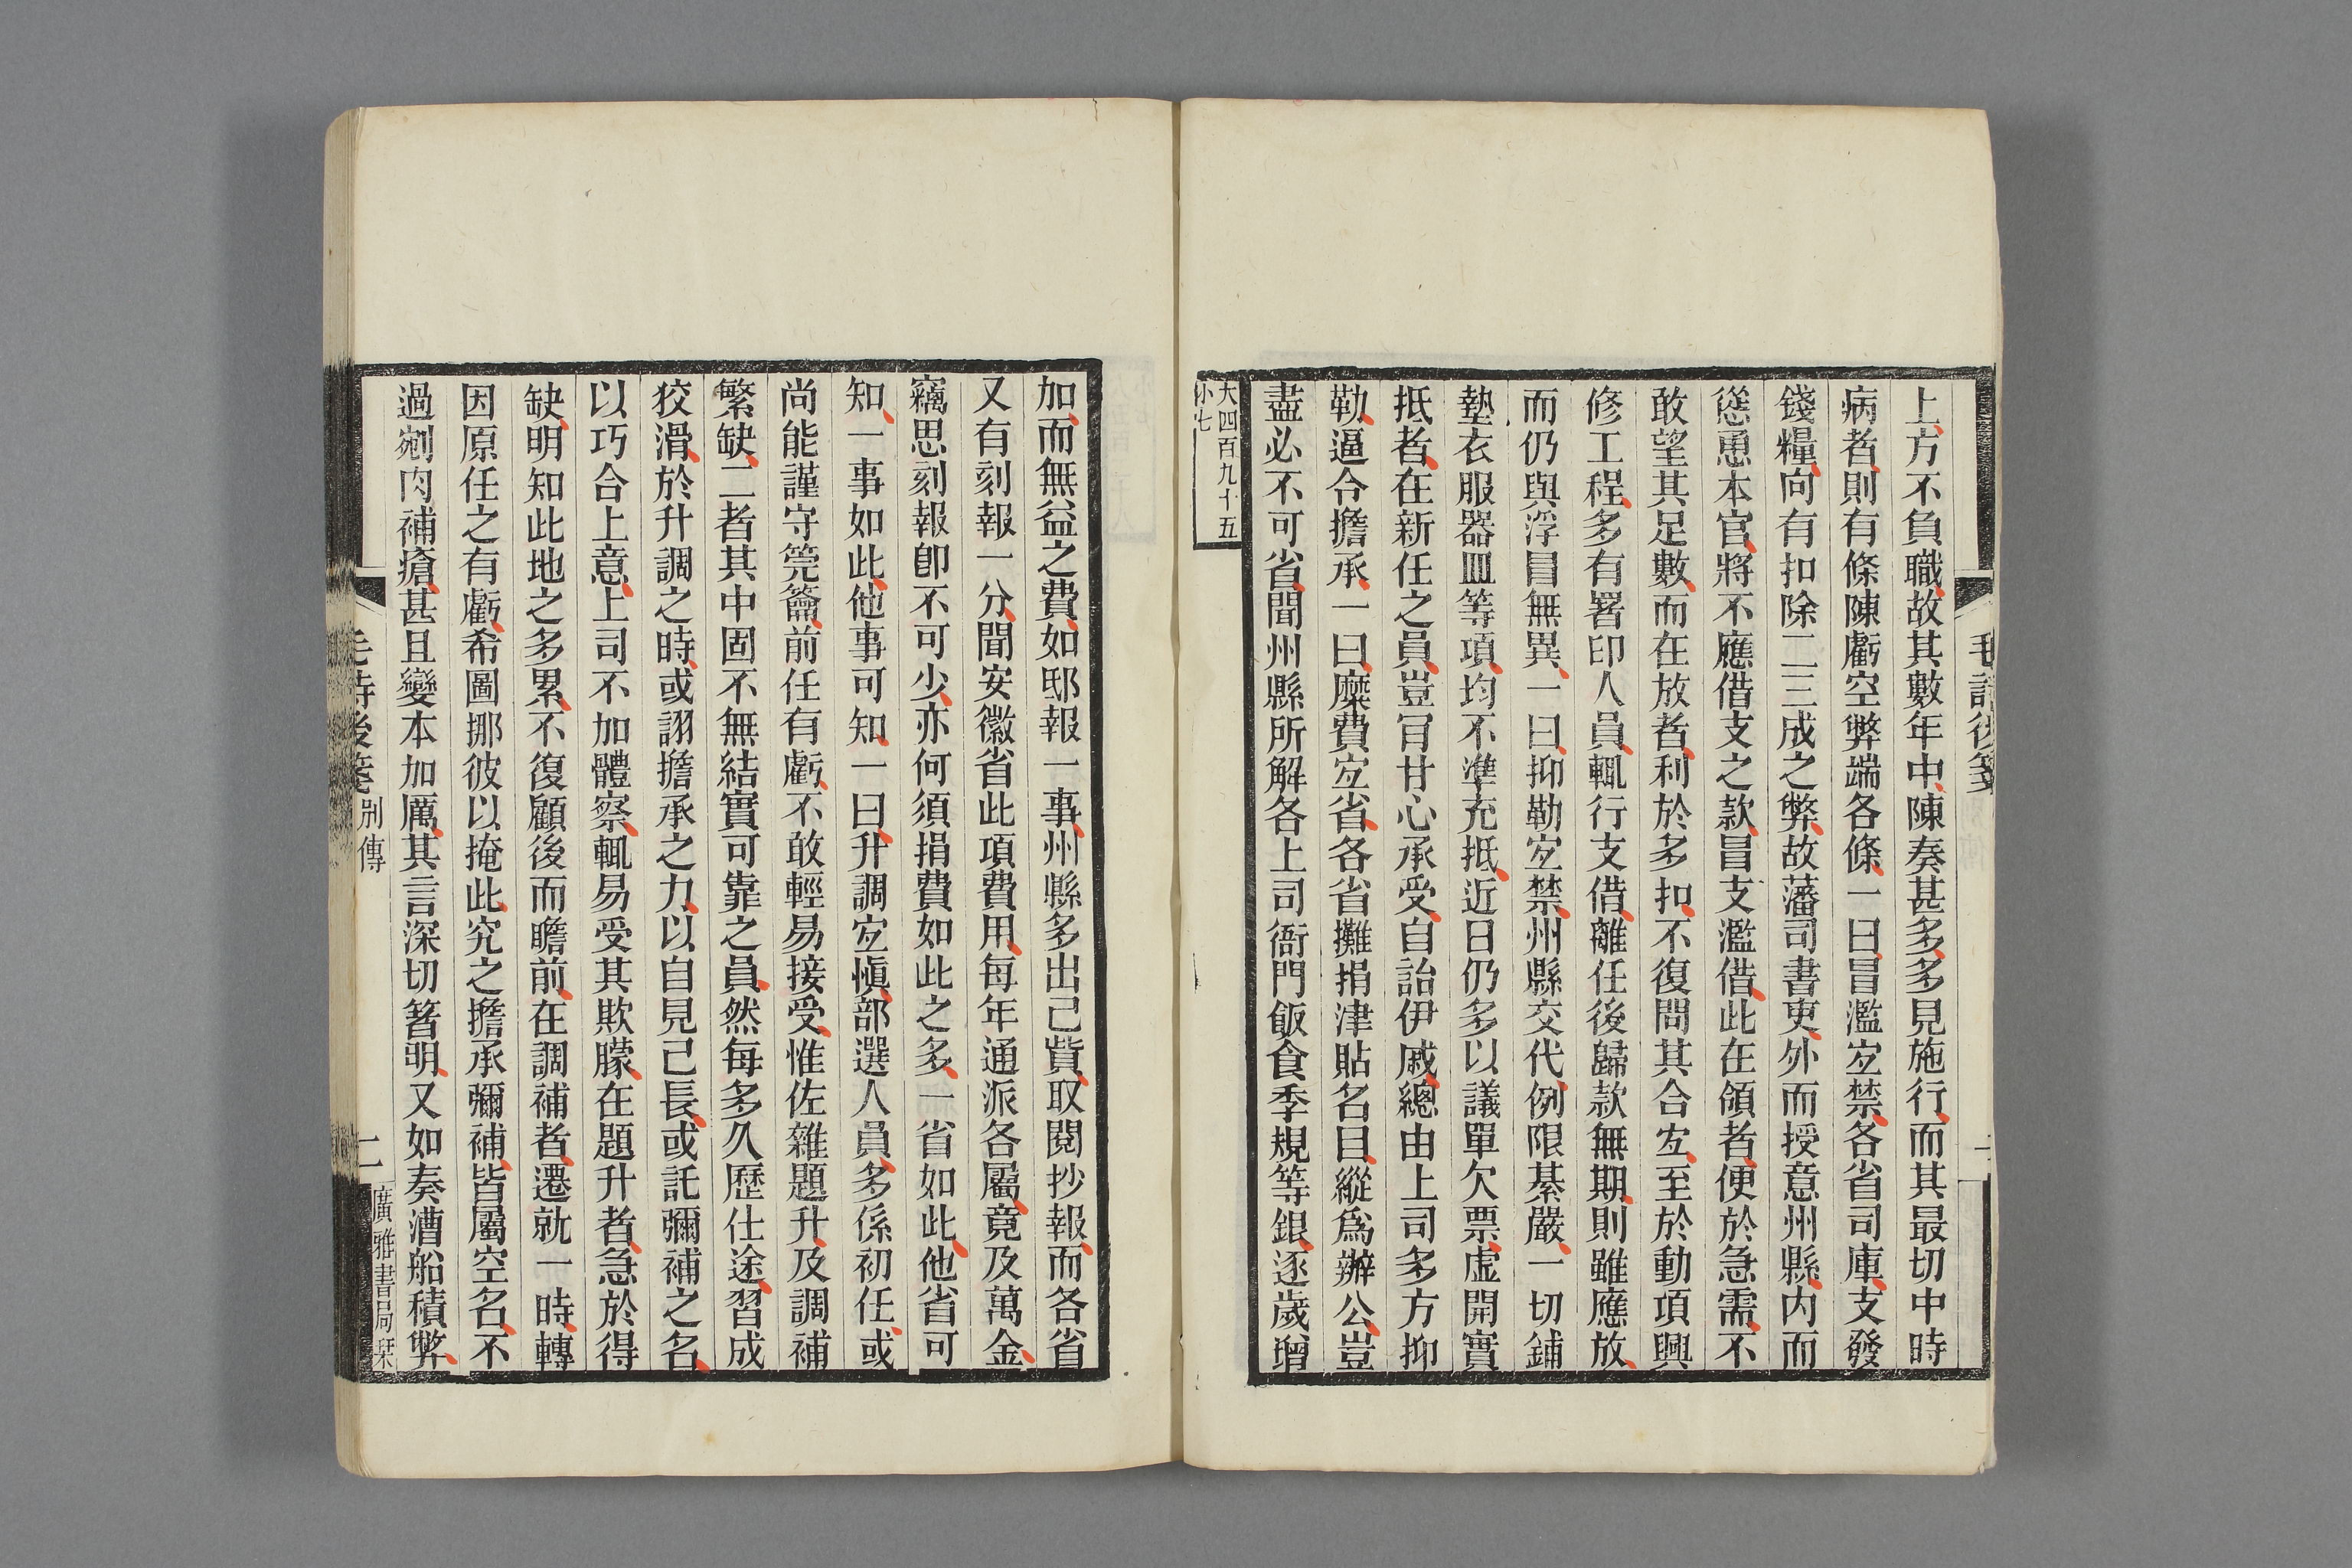 上方不負職故其數年中陳奏甚多多見施行而其最切中時
病者則有條陳虧空弊端各條一曰冒濫宐禁各省司庫支發
錢糧向有扣除二三成之弊故藩司書吏外而授意州縣內而
慫恿本官將不應借支之款冒支濫借此在領者便於急需不
敢望其足數而在放者利於多扣不復問其合宐至於動項興
修工程多有署印人員輒行支借離任後歸款無期則雖應放
而仍與浮冒無異一曰抑勒宐禁州縣交代例限綦嚴一切鋪
墊衣服器皿等項均不準充抵近日仍多以議單欠票虛開實
抵者在新任之員豈肎甘心承受自詒伊戚總由上司多方抑
勒逼合擔承一曰糜費宐省各省攤捐津貼名目縱爲辦公豈
盡必不可省聞州縣所解各上司衙門飯食季規等銀逐歲增
大四百九十五
小七
毛詩後箋
加而無益之費如邸報一事州縣多出己貲取閱抄報而各省
又有刻報一分聞安徽省此項費用每年通派各屬竟及萬金
竊思刻報卽不可少亦何須捐費如此之多一省如此他省可
知一事如此他事可知一曰升調宐愼部選人員多係初任或
尚能謹守筦籥前任有虧不敢輕易接受惟佐雜題升及調補
繁缺二者其中固不無結實可靠之員然每多久歷仕途習成
狡滑於升調之時或詡擔承之力以自見己長或託彌補之名
以巧合上意上司不加體察輒易受其欺朦在題升者急於得
缺明知此地之多累不復顧後而瞻前在調補者遷就一時轉
因原任之有虧希圖挪彼以掩此究之擔承彌補皆屬空名不
過剜肉補瘡甚且變本加厲其言深切箸明又如奏漕船積弊
毛詩後箋 別傳
二
廣雅書局栞